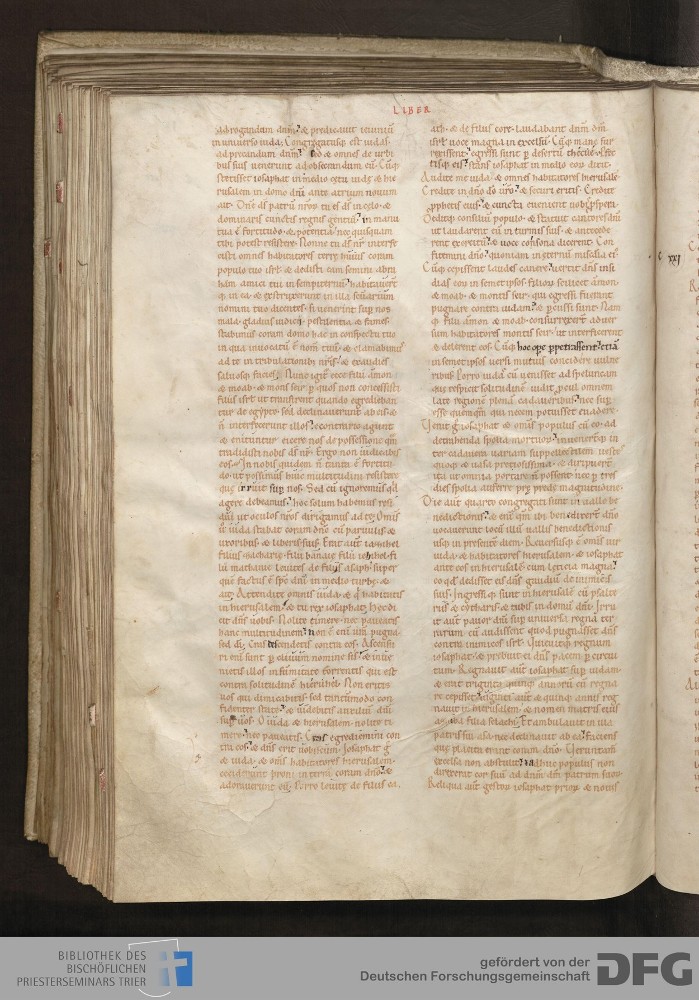 LIBER
ad rogandum dnm & predicavit ieiuniu
in universo iuda. Congregatusq est iudas
ad precandum dnm. Sed & omnes de urbi
bus suis venerunt ad obsecrandum eu. Cuq
stetisset iosaphat in medio cetu iudę & hie
rusalem in domo dni ante atrium novum
ait. Dne ds patru nrou tu es ds in celo &
dominaris cunctis regnis gentiu in manu
tua e fortitudo & potentia nec quisquam
tibi potest resistere. Nonne tu ds nr interfe
cisti omnes habitatores terrę huius coram
populo tuo isrl & dedisti eam semini abra
ham amici tui in sempiternu habitaverut
q in ea & extruxerunt in illa sctuarium
nomini tuo dicentes. si venerint sup nos
mala gladius iudicii pestilentia & fames
stabimus coram domo hac in conspectu tuo
in qua invocatu e nom tuu & clamabimus
ad te in tribulationib nris & exaudies
salvosq facies. Nunc igit ecce filii amon
& moab & mons seir p quos non concessisti
filiis isrl ut transirent quando egredieban
tur de egypto sed declinaverunt ab eis &
n interfecerunt illos econtrario agunt
& nituntur eicere nos de possessione qm
tradidisti nobis ds nr. Ergo non iudicabis
eos. In nobis quidem n tanta e fortitu
do ut possimus huic multitudini resistere
que irruit sup nos. Sed cu ignoremus qd
agere debeamus hoc solum habemus resi
dui ut oculos nros dirigamus ad te. Omis
u iuda stabat coram dno cu parvulis &
uxoribus & liberis suis. Erat aut iaziohel
filius zacharię filii banaię filii iehihel fi
lii mathanię levites de filiis asaph super
que factus e sps dni in medio turbę &
ait. Attendite omnis iuda & qi habitatis
in hierusalem & tu rex iosaphat. Hęc di
cit dns vobis. Nolite timere nec paveatis
hanc multitudinem non e eni vra pugna
sed di. Cras descendetis contra eos. Ascensu
ri eni sunt p clivum nomine sis & inve
nietis illos in summitate torrentis qui est
contra solitudine hieruhel. Non eritis
vos qui dimicabitis sed tantummodo con
fidenter state & videbitis auxiliu dni
sup vos. O iuda & hierusalem nolite ti
mere nec paveatis. Cras egrediemini con
tra eos & dns erit vobiscum. Iosaphat g
& iuda & oms habitatores hierusalem
ceciderunt proni in terra coram dno &
adoraverunt eu. Porro levitę de filiis ca
ath & de filiis core laudabant dnm dm
isrl voce magna in excelsu. Cuq mane sur
rexissent egressi sunt p desertu thecue pfec
tisq eis stans iosaphat in medio eou dixit.
Audite me iuda & omnes habitatores hierusale
Credite in dno do vro & securi eritis. Credite
pphetis eius & cuncta evenient nob pspera.
Deditq consiliu populo & statuit cantores dni
ut laudarent eu in turmis suis & antecede
rent exercitu & voce consona dicerent. Con
fitemini dno quoniam in eternu misedia ei
Cuq cepissent laudes canere vertit dns insi
dias eou in semet ipsos filiou scilicet amon
& moab & montis seir qui egressi fuerant
pugnare contra iudam & pcussi sunt. Nam
q filii amon & moab consurrexert advers
sum habitatores montis seir ut interficerent
& delerent eos. Cuq hoc ope ppetrassent etia
in semet ipsos versi mutuis concidere vulne
ribus. Porro iudas cu venisset ad speculam
que respicit solitudine vidit pcul omnem
late regione plena cadaveribus nec sup
esse quemqm qui necem potuisset evadere.
Venit g iosaphat & omis populus cu eo ad
detrahenda spolia mortuou inveneruntq in
ter cadavera variam supellectilem veste
quoq & vasa preciosissima & diripuert
ita ut omnia portare n possent nec p tres
dies spolia auferre prę predę magnitudine.
Die aut quarto congregati sunt in valle be
nedictionis & eni qm ibi benedixert dno
vocaverunt locu illu vallis benedictionis
usq in presente diem. Reversusq e omis vir
iuda & habitatores hierusalem & iosaphat
ante eos in hierusale cum leticia magna
eo qd dedisset eis dns gaudiu de inimicis
suis. Ingressiq sunt in hierusale cu psalte
riis & cytharis & tubis in domu dni. Irru
it aut pavor dni sup universa regna ter
rarum cu audissent quod pugnasset dns
contra inimicos isrl. Quievitq regnum
iosaphat & prebuit ei dns pacem p circui
tum. Regnavit aut iosaphat sup iudam
& erat triginta quinq annoru cu regna
re cepisset viginti aut & quinq annis reg
navit in hierusalem & nomen matris eius
azuba filia selachi. Et ambulavit in via
patris sui asa nec declinavit ab ea faciens
que placita erant coram dno. Verumtam
excelsa non abstulit & adhuc populus non
direxerat cor suu ad dnm dm patrum suou
Reliqua aut gestou iosaphat priou & novis
C XXI
BIBLIOTHEK DES
BISCHÖFLICHEN
PRIESTERSEMINARS TRIER
gefördert von der
Deutschen Forschungsgemeinschaft
DFG